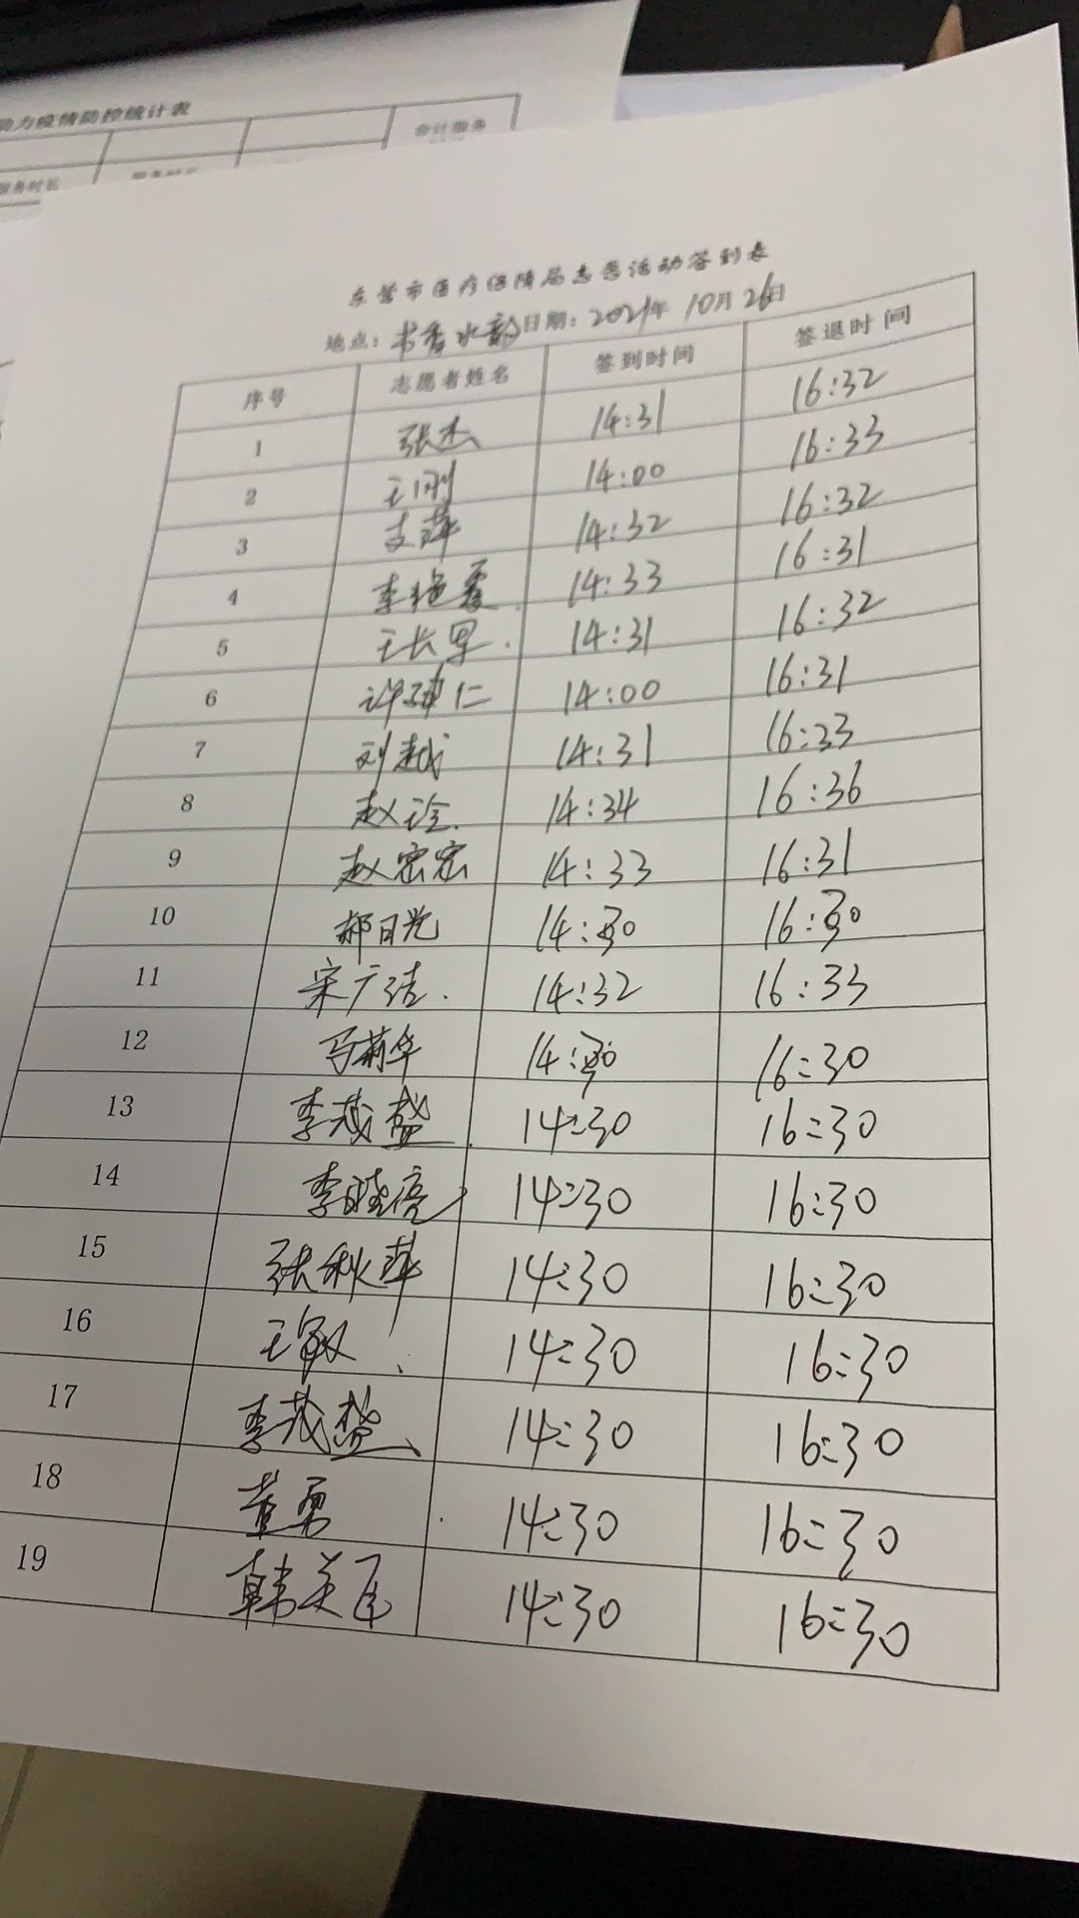 助力疫情防控统计表
会计服务
服务时长
东营市医疗保障局志愿活动签到表
地点：书香水韵 日期：2021年 10月26日
序号 志愿者姓名 签到时间 签退时间
1 张杰 14:31 16:32
2 王刚 14:00 16:33
3 支萍 14:32 16:32
4 李艳霞 14:33 16:31
5 王长军 14:31 16:32
6 仁 14:00 16:31
7 刘越 14:31 16:33
8 赵诠 14:34 16:36
9 赵宏宏 14:33 16:31
10 郝日光 14:30 16:30
11 宋广洁 14:32 16:33
12 马莉华 14:30 16:30
13 李茂盛 14:30 16:30
14 李晓亮 14:30 16:30
15 张秋萍 14:30 16:30
16 王敏 14:30 16:30
17 李茂盛 14:30 16:30
18 董勇 14:30 16:30
19 韩美 14:30 16:30